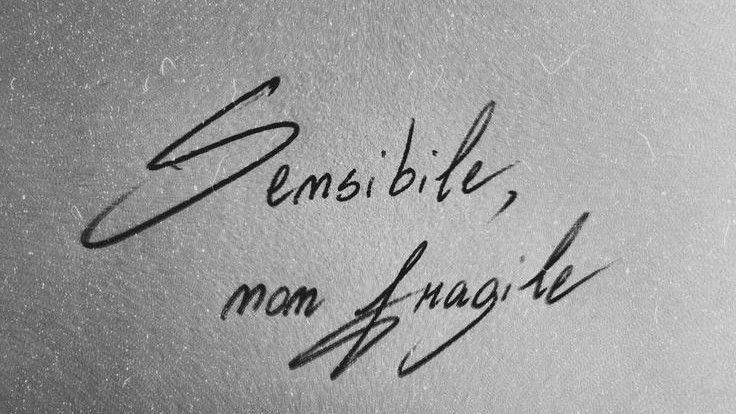 Sensibile,
non fragile